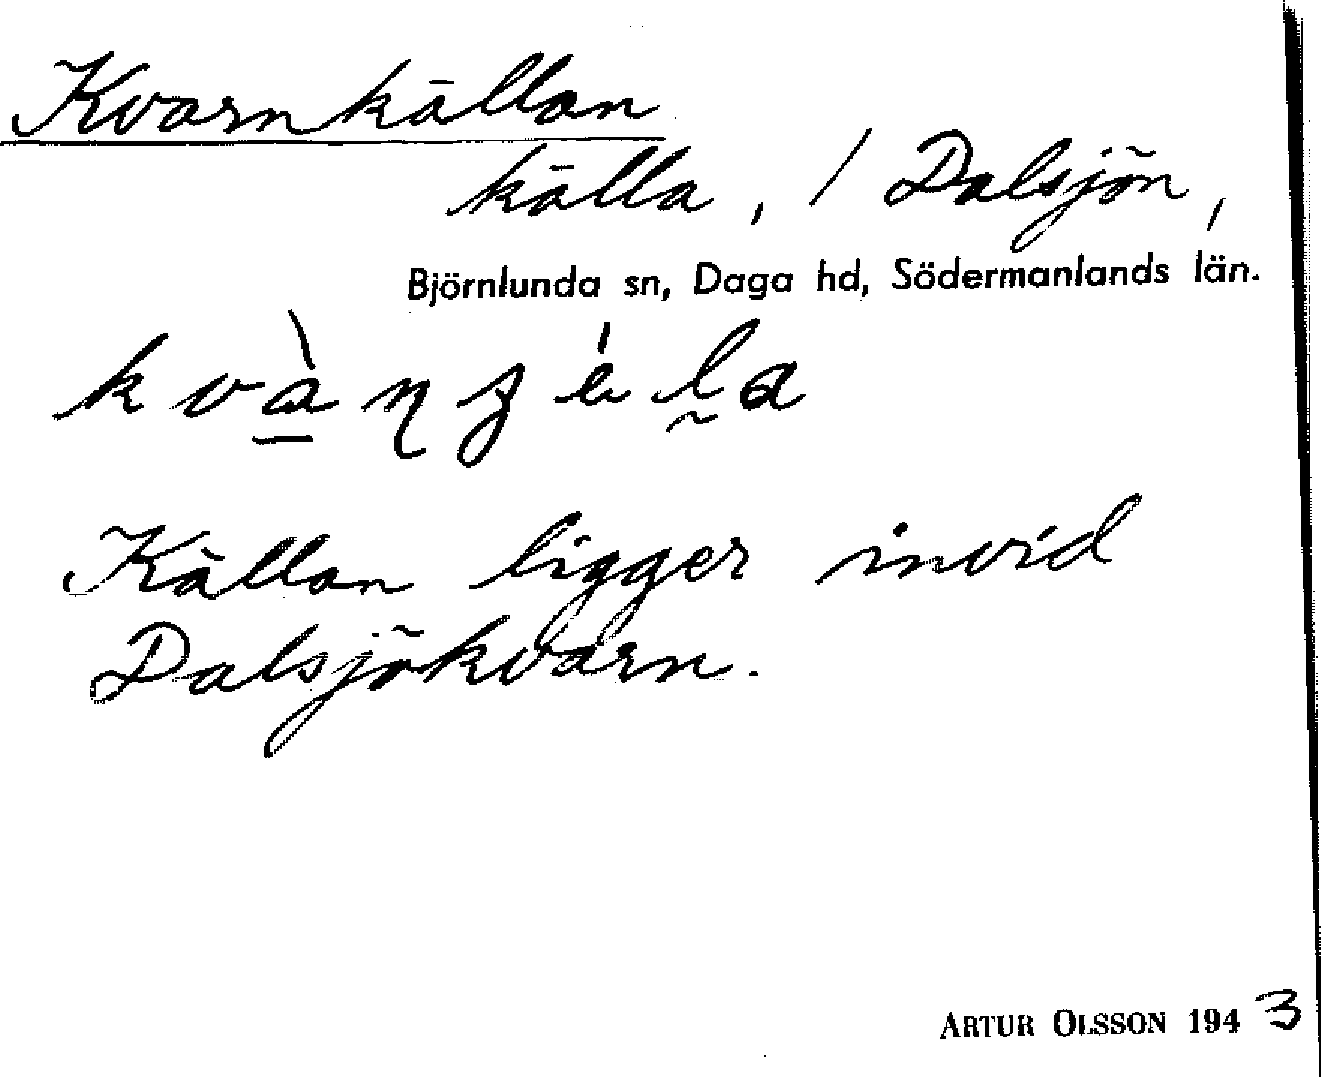 Kvarnkällan
källa, / Dalsjön,
Björnlunda sn, Daga hd, Södermanlands län.
Källan ligger invid
Dalsjökvarn.
ARTUR OLSSON 1943